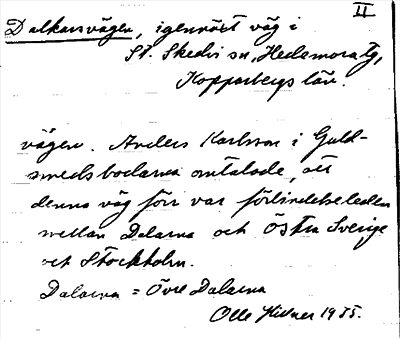 II
Dalkarsvägen, igenväxt väg i
St. Skedvi sn, Hedemora tg,
Kopparbergs län.
vägen. Anders Karlsson i Guld-
smedsbodarna omtalade, att
denna väg förr var förbindelseleden
mellan Dalarna och Östra Sverige
och Stockholm.
Dalarna = Övre Dalarna
Olle Hillner 1935.